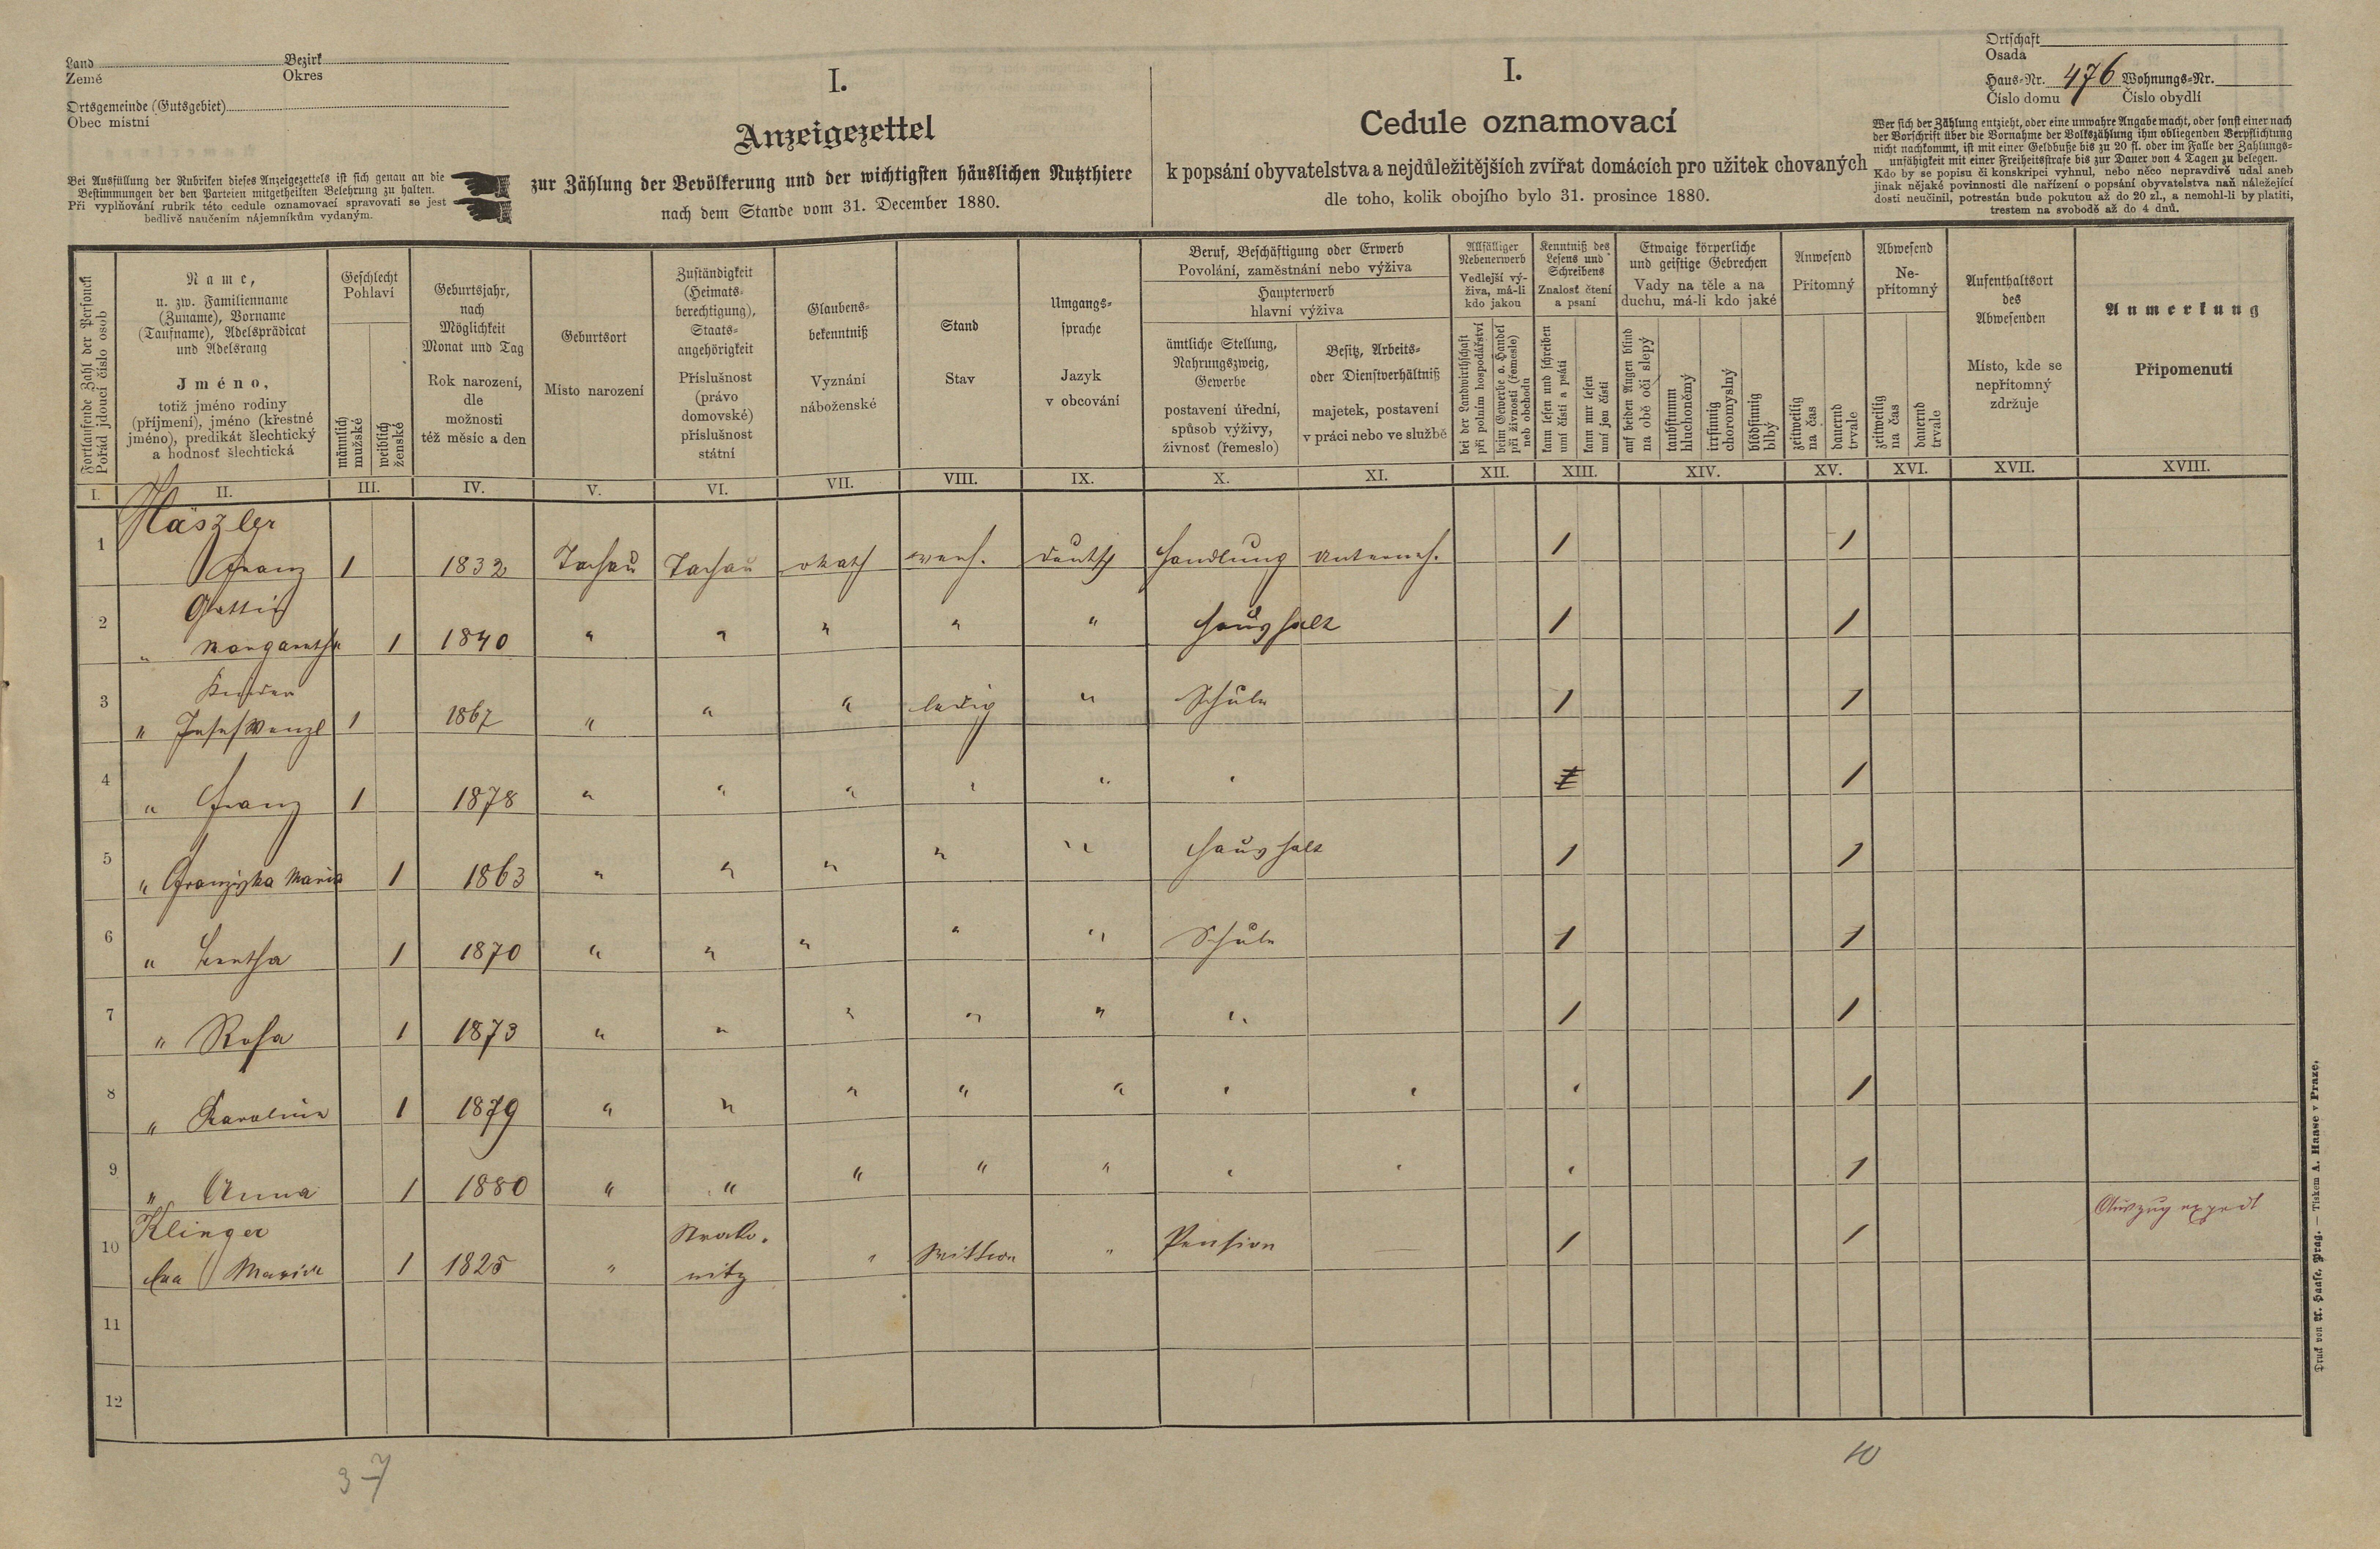 Land Bezirk
Země Okres
Ortsgemeinde (Gutsgebiet)
Obec místní
Bei Ausfüllung der Rubriken dieses Anzeigezettels ist sich genau an die
Bestimmungen der den Parteien mitgetheilten Belehrung zu halten.
Při vyplňování rubrik této cedule oznamovací spravovati se jest
bedlivě naučením nájemníkům vydaným.
I.
Anzeigezettel
zur Zählung der Bevölkerung und der wichtigsten häuslichen Nutzthiere
nach dem Stande vom 31. December 1880.
I.
Cedule oznamovací
k popsání obyvatelstva a nejdůležitějších zvířat domácích pro užitek chovaných
dle toho, kolik obojího bylo 31. prosince 1880.
Ortschaft
Osada
Haus-Nr. 476 Wohnungs-Nr.
Číslo domu Číslo obydlí
Wer sich der Zählung entzieht, oder eine unwahre Angabe macht, oder sonst einer nach
der Vorschrift über die Vornahme der Volkszählung ihm obliegenden Verpflichtung
nicht nachkommt, ist mit einer Geldbuße bis zu 20 fl. oder im Falle der Zahlungs-
unfähigkeit mit einer Freiheitsstrafe bis zur Dauer von 4 Tagen zu belegen.
Kdo by se popisu či konskripci vyhnul, nebo něco nepravdivě udal aneb
jinak nějaké povinnosti dle nařízení o popsání obyvatelstva naň náležející
dosti neučinil, potrestán bude pokutou až do 20 zl., a nemohl-li by platiti,
trestem na svobodě až do 4 dnů.
Fortlaufende Zahl der Personen
Pořád jdoucí číslo osob
Name,
u. zw. Familienname
(Zuname), Vorname
(Taufname), Adelsprädicat
und Adelsrang
Jméno,
totiž jméno rodiny
(příjmení), jméno (křestné
jméno), predikát šlechtický
a hodnosť šlechtická
Geschlecht
Pohlaví
männlich
mužské
weiblich
ženské
Geburtsjahr,
nach
Möglichkeit
Monat und Tag
Rok narození,
dle
možnosti
též měsíc a den
Geburtsort
Místo narození
Zuständigkeit
(Heimats-
berechtigung),
Staats-
angehörigkeit
Příslušnost
(právo
domovské)
příslušnost
státní
Glaubens-
bekenntniß
Vyznání
náboženské
Stand
Stav
Umgangs-
sprache
Jazyk
v obcování
Beruf, Beschäftigung oder Erwerb
Povolání, zaměstnání nebo výživa
Haupterwerb
hlavní výživa
ämtliche Stellung,
Nahrungszweig,
Gewerbe
postavení úřední,
spůsob výživy,
živnosť (řemeslo)
Besitz, Arbeits-
oder Dienstverhältniß
majetek, postavení
v práci nebo ve službě
Allfälliger
Nebenerwerb
Vedlejší vý-
živa, má-li
kdo jakou
bei der Landwirthschaft
při polním hospodářství
beim Gewerbe o. Handel
při živnosti (řemesle)
neb obchodu
Kenntniß des
Lesens und
Schreibens
Znalosť čtení
a psaní
kann lesen und schreiben
umí čísti a psáti
kann nur lesen
umí jen čísti
Etwaige körperliche
und geistige Gebrechen
Vady na těle a na
duchu, má-li kdo jaké
auf beiden Augen blind
na obě oči slepý
taubstumm
hluchoněmý
irrsinnig
choromyslný
blödsinnig
blbý
Anwesend
Přítomný
zeitweilig
na čas
dauernd
trvale
Abwesend
Ne-
přítomný
zeitweilig
na čas
dauernd
trvale
Aufenthaltsort
des
Abwesenden
Místo, kde se
nepřítomný
zdržuje
Anmerkung
Připomenutí
I. II. III. IV. V. VI. VII. VIII. IX. X. XI. XII. XIII. XIV. XV. XVI. XVII. XVIII.
Häszler
1 Franz 1 1832 Tachau Tachau rkath verh. deutsch Handlung Unterneh. 1 1
2 " Margaretha 1 1840 " " " " " Haushalt 1 1
Kinder
3 " Josef Wenzl 1 1867 " " " ledig " Schule 1 1
4 " Franz 1 1878 " " " " " " 1
5 " Franziska Maria 1 1863 " " " " " Haushalt 1 1
6 " Bertha 1 1870 " " " " " Schule 1 1
7 " Rosa 1 1873 " " " " " " 1 1
8 " Karolina 1 1879 " " " " " " " " 1
9 " Anna 1 1880 " " " " " " " " 1
Klinger
10 Eva Maria 1 1825 " Strako-
nitz " Wittwe " Pension — 1 1
Auszug exped
11
12
37
10
Druck von A. Haase, Prag. — Tiskem A. Haase v Praze.